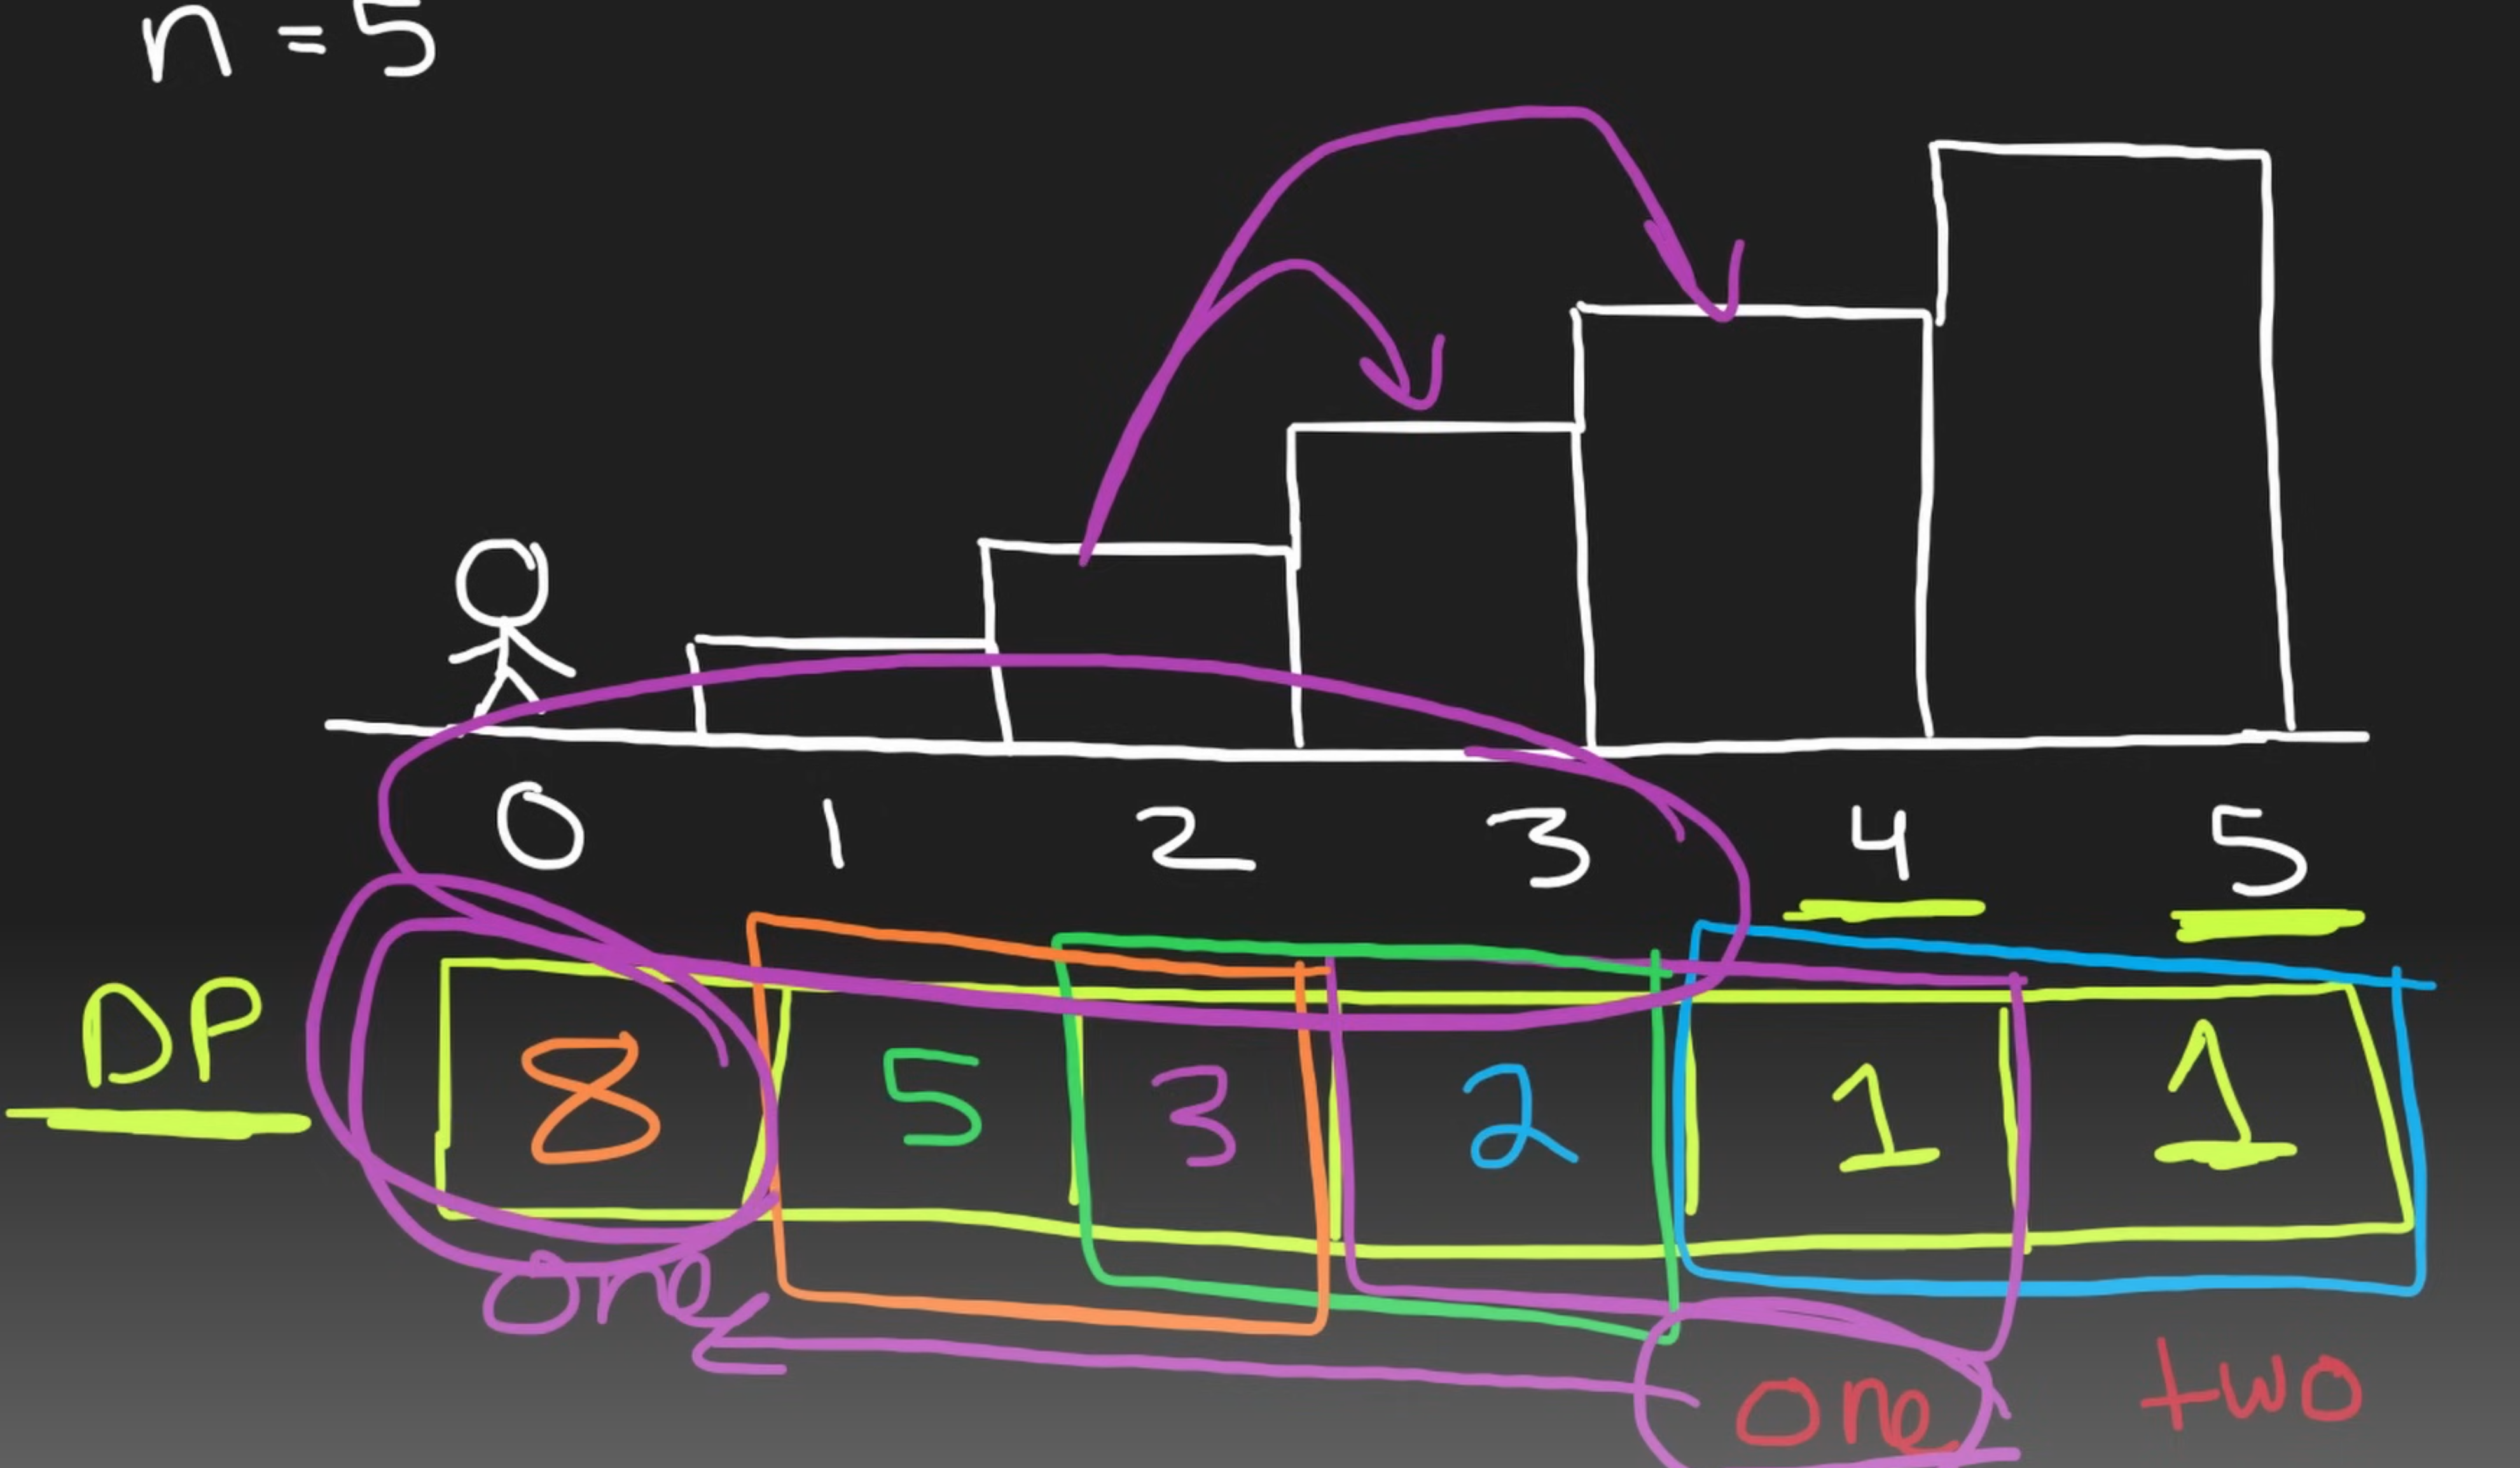 n = 5
0 1 2 3 4 5
DP 8 5 3 2 1 1
one
one two